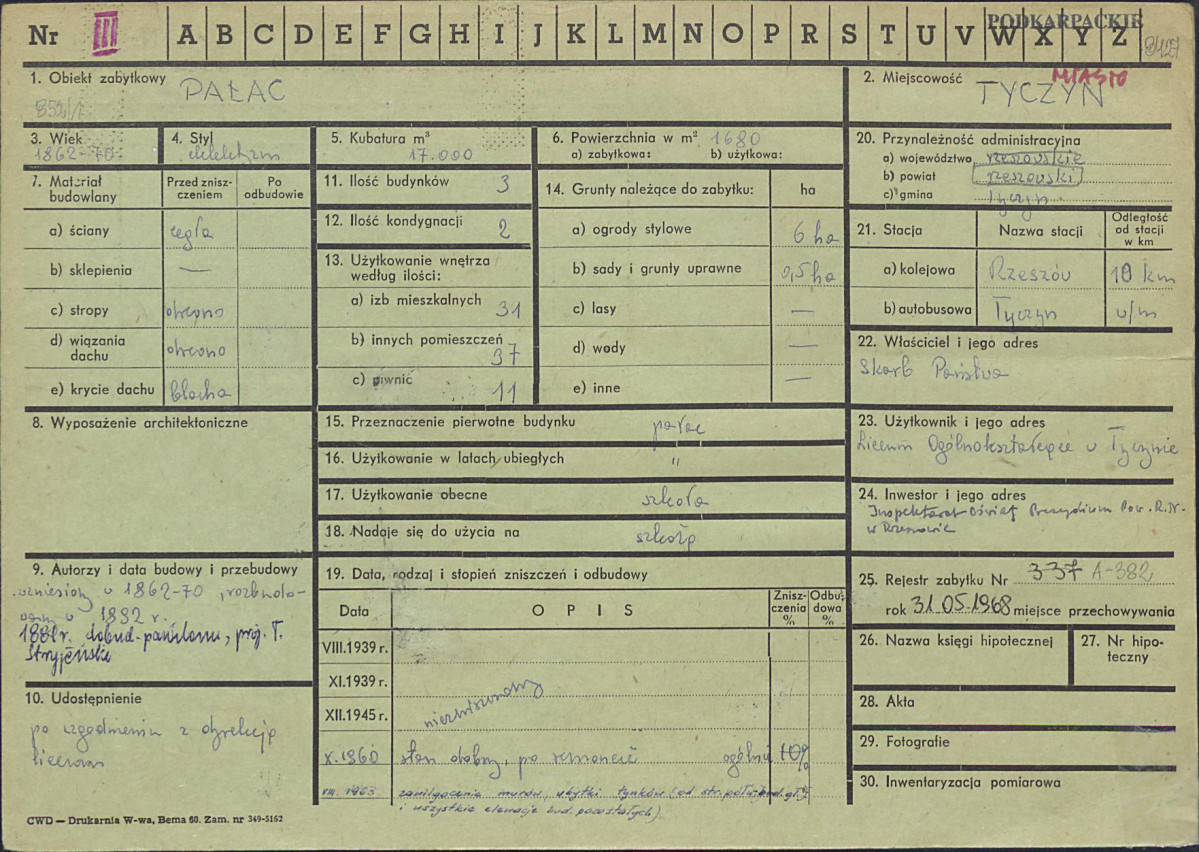 Nr III A B C D E F G H I J K L M N O P R S T U V W X Y Z
PODKARPACKIE
1. Obiekt zabytkowy PAŁAC
2. Miejscowość TYCZYN MIASTO
3. Wiek 1862-70
4. Styl eklektyzm
5. Kubatura m³ 17.000
6. Powierzchnia w m² 1680
a) zabytkowa: b) użytkowa:
20. Przynależność administracyjna
a) województwo rzeszowskie
b) powiat rzeszowski
c) gmina Tyczyn
7. Materiał budowlany
Przed zniszczeniem
Po odbudowie
a) ściany cegła
b) sklepienia —
c) stropy drewno
d) wiązania dachu drewno
e) krycie dachu blacha
11. Ilość budynków 3
12. Ilość kondygnacji 2
13. Użytkowanie wnętrza
według ilości:
a) izb mieszkalnych 31
b) innych pomieszczeń 37
c) piwnic 11
14. Grunty należące do zabytku: ha
a) ogrody stylowe 6 ha
b) sady i grunty uprawne 0,5 ha
c) lasy —
d) wody —
e) inne —
21. Stacja Nazwa stacji Odległość od stacji w km
a) kolejowa Rzeszów 10 km
b) autobusowa Tyczyn w/m
22. Właściciel i jego adres
Skarb Państwa
8. Wyposażenie architektoniczne
15. Przeznaczenie pierwotne budynku pałac
16. Użytkowanie w latach ubiegłych "
17. Użytkowanie obecne szkoła
18. Nadaje się do użycia na szkołę
23. Użytkownik i jego adres
Liceum Ogólnokształcące w Tyczynie
24. Inwestor i jego adres
Inspektorat Oświaty Prezydium Pow. R.N.
w Rzeszowie
9. Autorzy i data budowy i przebudowy
wzniesiony w 1862-70, rozbudo-
wany w 1882 r.
dobud. pawilonu, proj. T.
Stryjeński
10. Udostępnienie
po uzgodnieniu z dyrekcją
liceum
19. Data, rodzaj i stopień zniszczeń i odbudowy
Data OPIS Zniszczenia % Odbudowa %
VIII.1939 r.
XI.1939 r.
XII.1945 r.
niezniszczony
X.1960 stan dobry, po remoncie ogólnie 10%
VIII. 1963 zawilgocenie murów, ubytki tynków (od str. połud. bud. gł.
i wszystkie elewacje bud. pozostałych)
25. Rejestr zabytku Nr 337 A-382
rok 31.05.1968 miejsce przechowywania
26. Nazwa księgi hipotecznej
27. Nr hipoteczny
28. Akta
29. Fotografie
30. Inwentaryzacja pomiarowa
CWD — Drukarnia W-wa, Bema 60. Zam. nr 349-5162